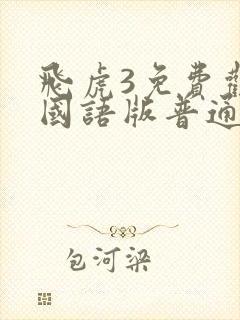 飛虎3免費
國語版普通
包河梁